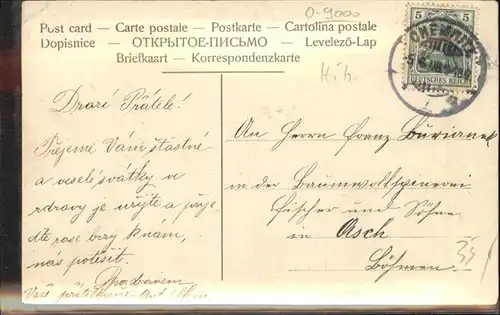 O-9000
Post card — Carte postale — Postkarte — Cartolina postale
Dopisnice — ОТКРЫТОЕ-ПИСЬМО — Levelező-Lap
Briefkaart — Korrespondenzkarte
5 5
CHEMNITZ
DEUTSCHES REICH
H.h.
Drazí Přátelé!
Přejeme Vám štastné
a veselé svátky ve
zdraví je užijte a přije
dte zase brzy k nám,
nás potěšit.
S pozdravem
Vaši
An Herrn Franz Burianek
in der Baumwollspinerei
Fischer und Söhne
in Asch
Böhmen.
35